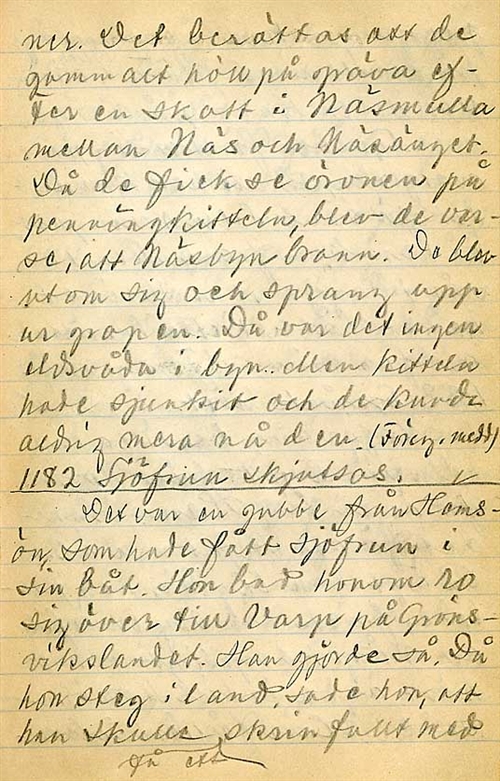 ner. Det berättas att de
gammalt höll på gräva ef-
ter en skatt i Näsmulla
mellan Näs och Näsänget.
Då de fick se öronen på
penningkitteln, blev de var-
se, att Näsbyn brann. De blev
utom sig och sprang upp
ur gropen. Då var det ingen
eldsvåda i byn. Men kitteln
hade sjunkit och de kunde
aldrig mera nå den. (Föreg. medd)
1182 Sjöfrun skjutsas.
Det var en gubbe från Hams-
ön, som hade fått sjöfrun i
sin båt. Hon bad honom ro
sig över till Varp på Gröns-
vikslandet. Han gjorde så. Då
hon steg i land, sade hon, att
han skulle skrin fullt med
få ett